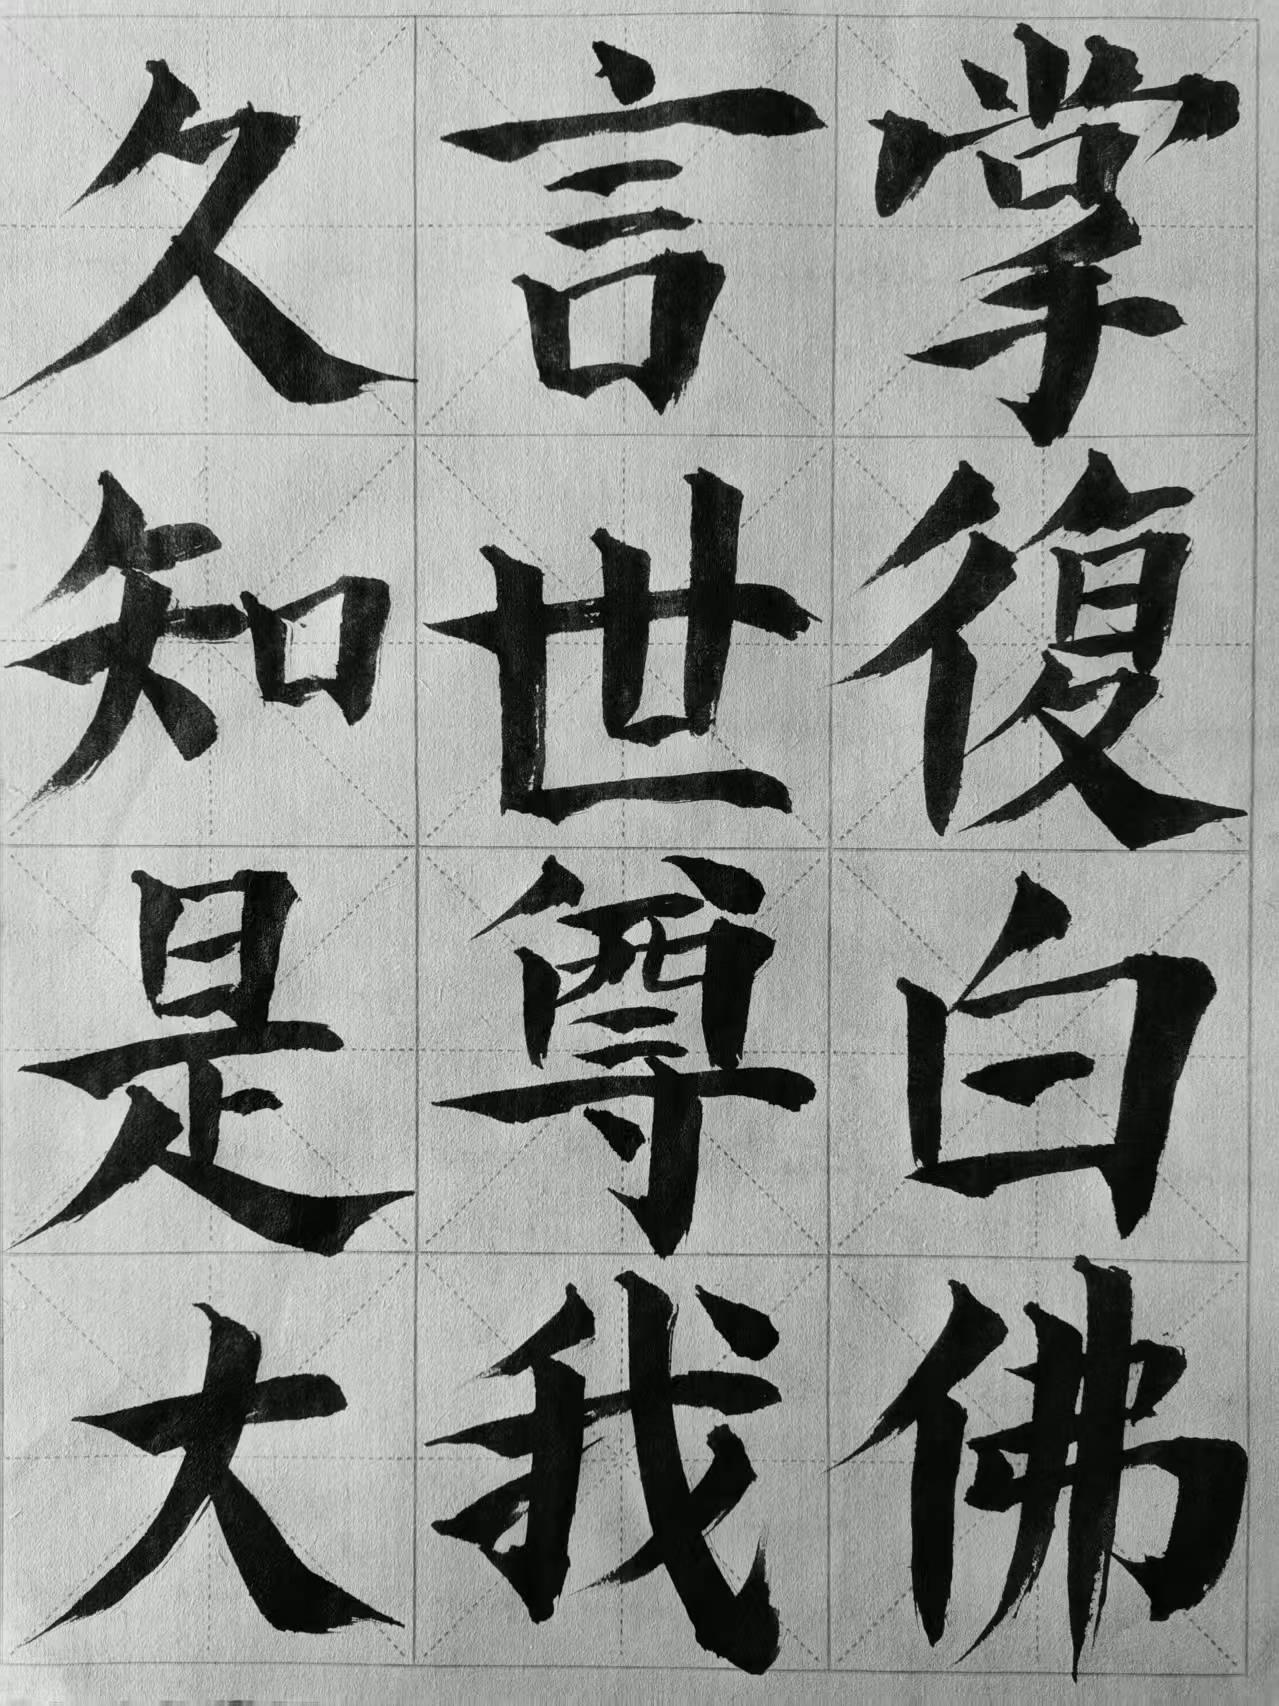 掌復白佛
言世尊我
久知是大